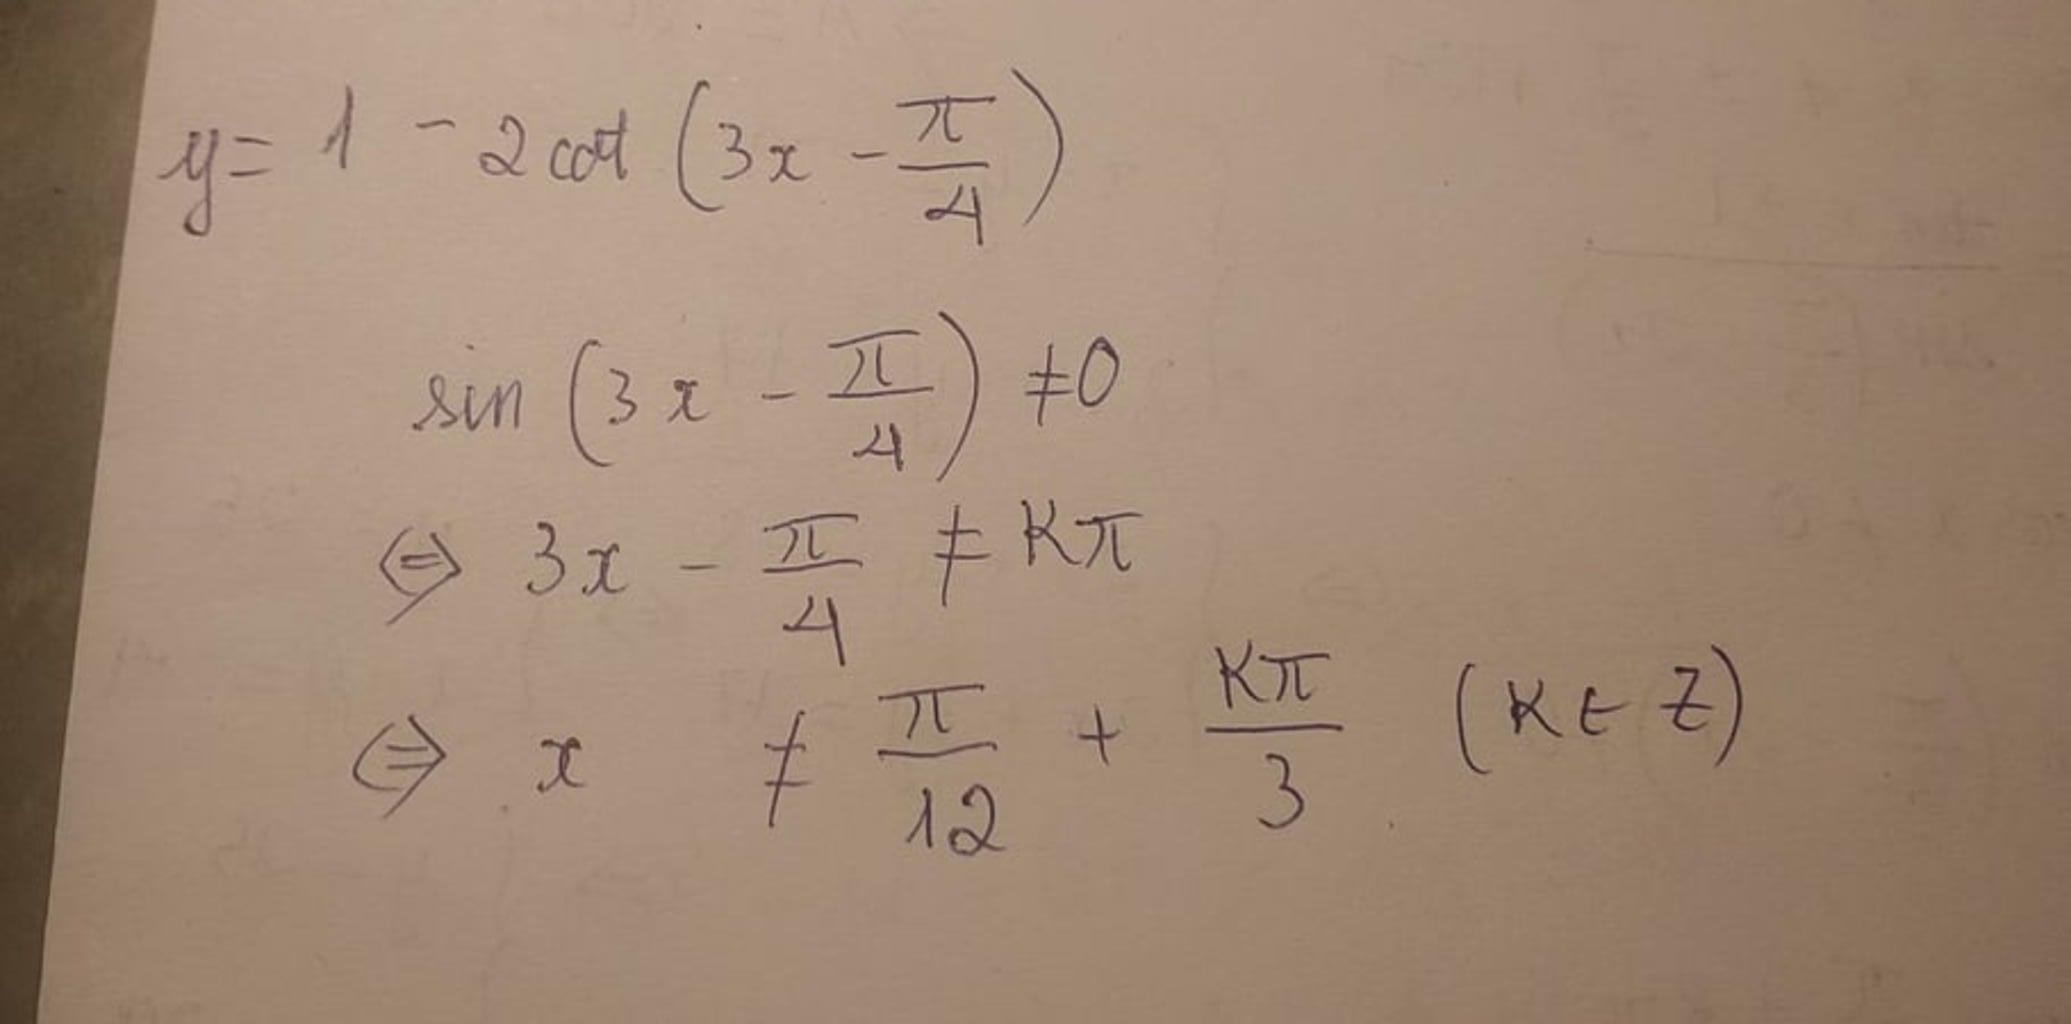 y = 1 - 2 cot (3x - π/4)
sin (3x - π/4) ≠ 0
⇔ 3x - π/4 ≠ Kπ
⇔ x ≠ π/12 + Kπ/3 (K ∈ Z)